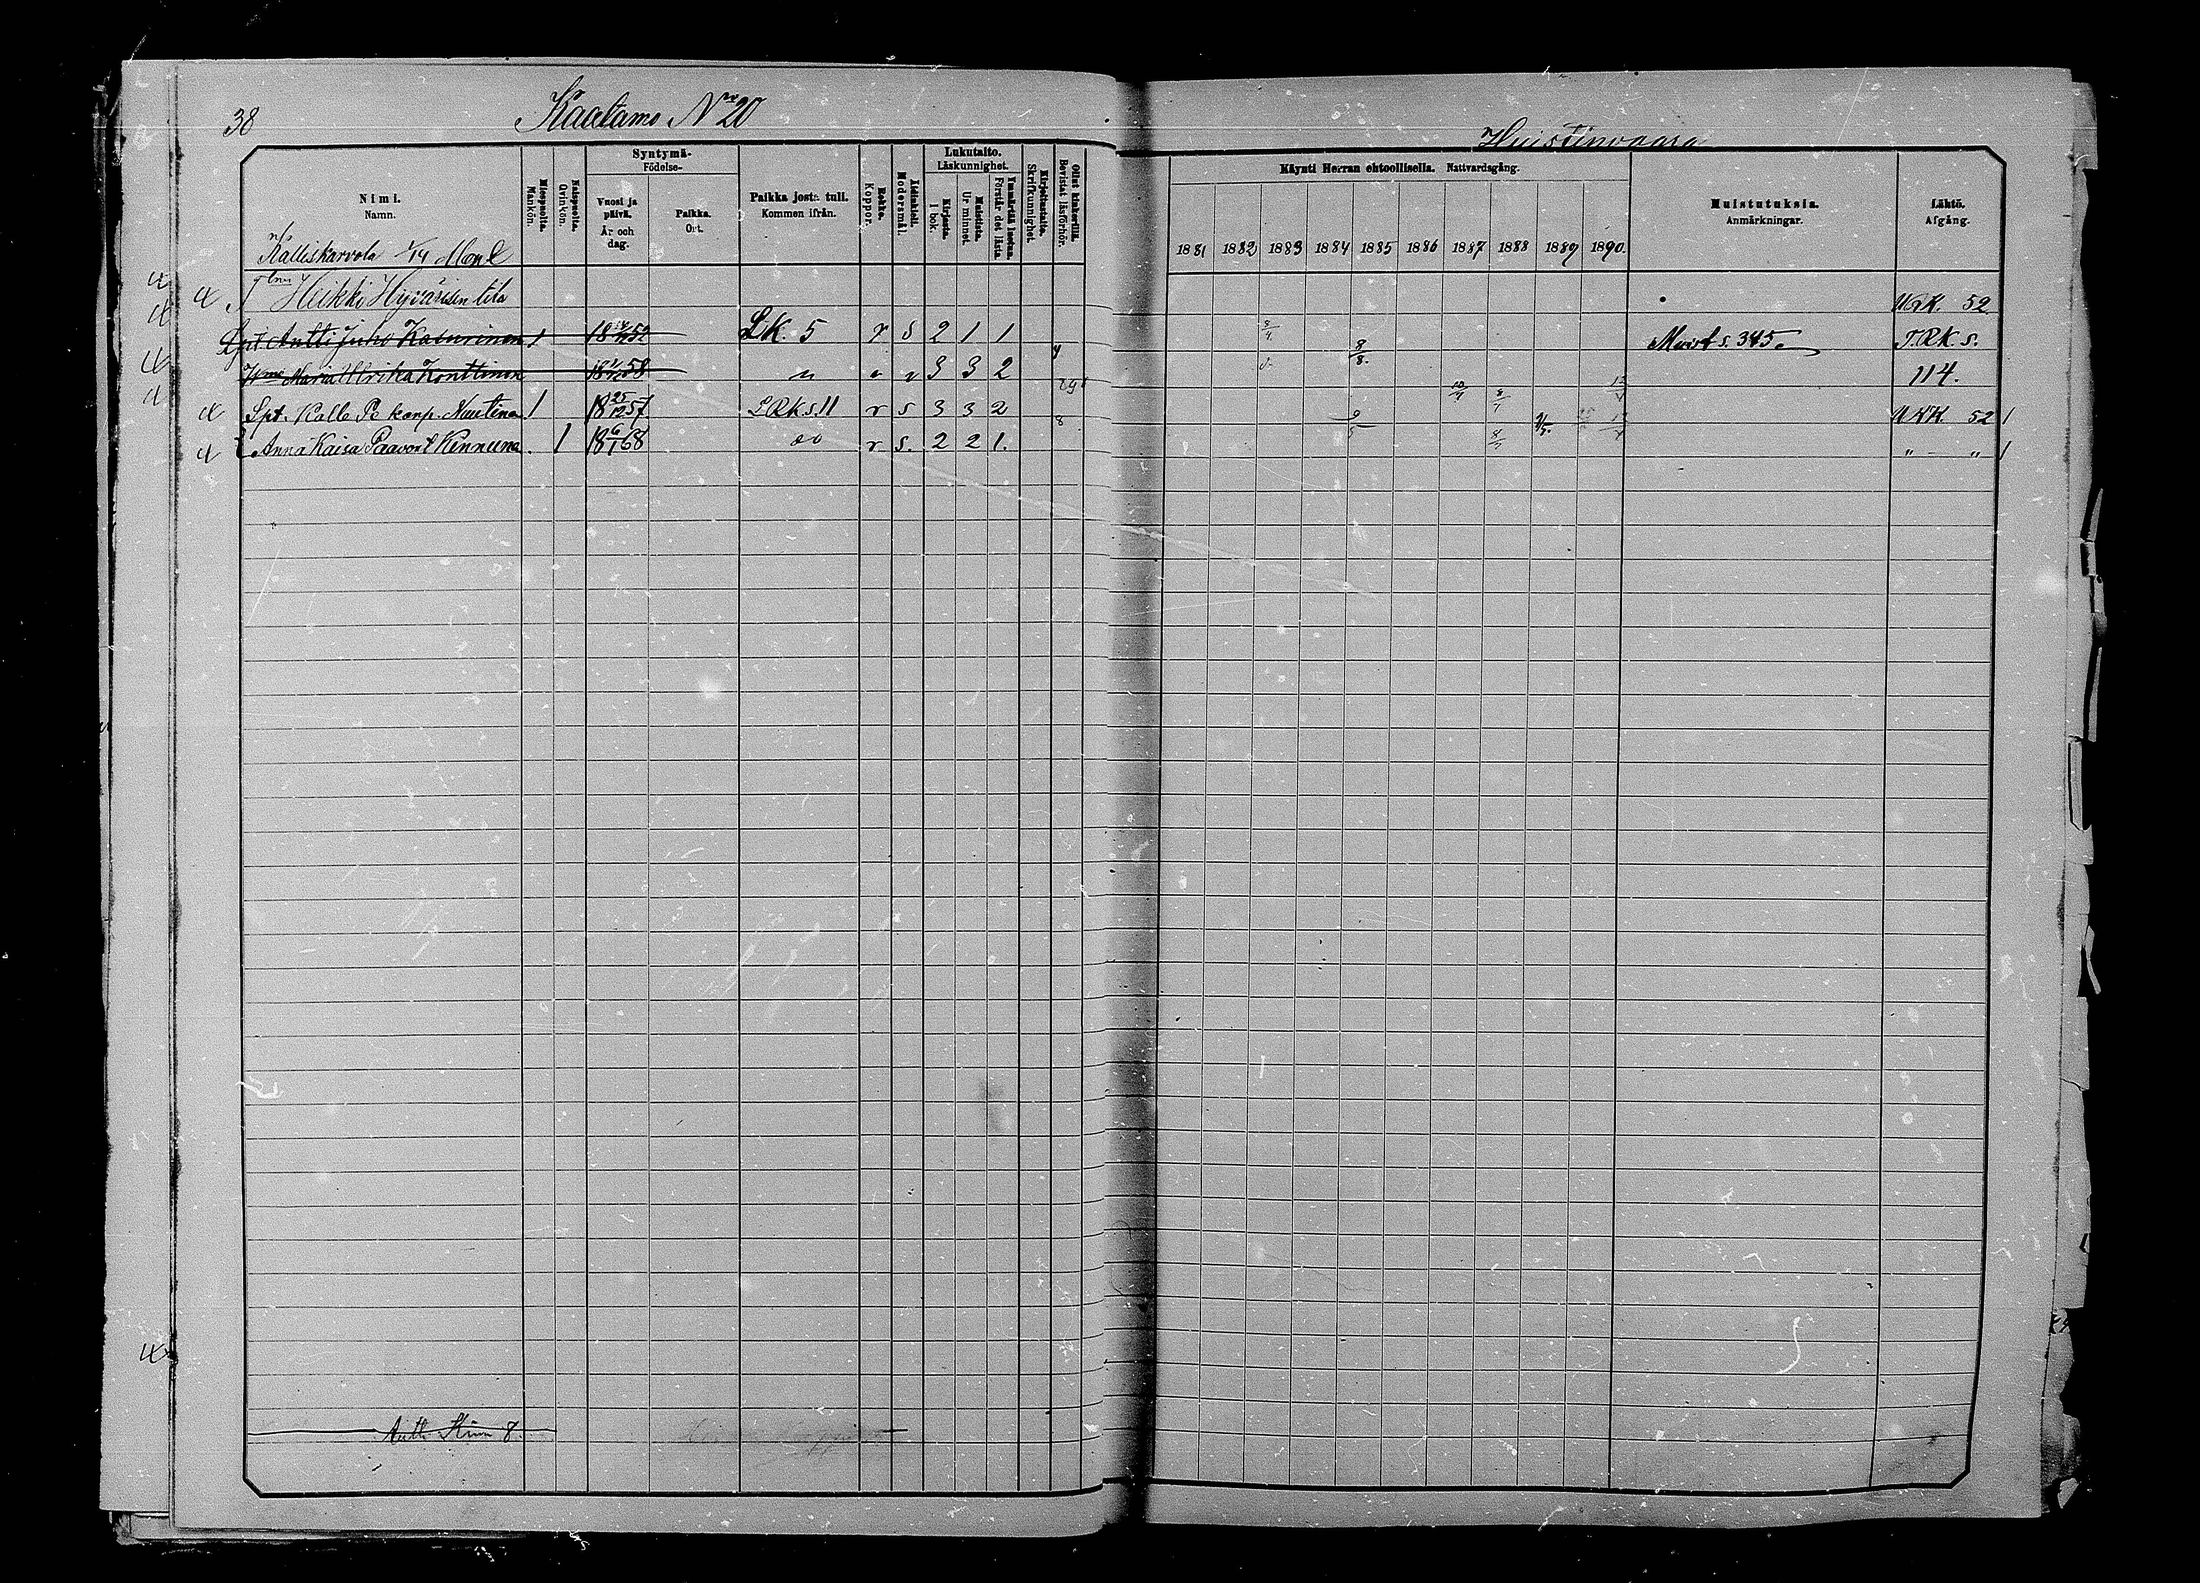 38 Kaatamo Nro 20
Huistinvaara
Nimi. Namn.
Miespuolta. Mankön.
Naispuolta. Qvinkön.
Syntymä- Födelse-
Vuosi ja päivä. År och dag.
Paikka. Ort.
Paikka josta tuli. Kommen ifrån.
Rokko. Koppor.
Äidinkieli. Modersmål.
Lukutaito. Läskunnighet.
Kirjasta. I bok.
Muistista. Ur minnet.
Ymmärtää luetun. Förstår det lästa.
Kirjoitustaito. Skrifkunnighet.
Ollut kinkerillä. Bevistat läsförhör.
Käynti Herran ehtoollisella. Nattvardsgång.
1881 1882 1883 1884 1885 1886 1887 1888 1889 1890
Muistutuksia. Anmärkningar.
Lähtö. Afgång.
Kalliskarvola 1/14 Mant
Heikki Hyvärisen tila URK. 52
Spt. Antti Juho Katurinen 1 18 52 LK. 5 r s 2 1 1 Muist s. 345. T.RK s.
Maria Ulrika Konttinen 18 58 " " " 3 3 2 8/8. 114.
Spt. Kalle Pekanp. Nuutinen 1 18 25/12 57 LRK s. 11 r s 3 3 2 URK. 52 1
Anna Kaisa Paavont Kinnunen 1 18 6/1 68 r s. 2 2 1. " - " 1
8.